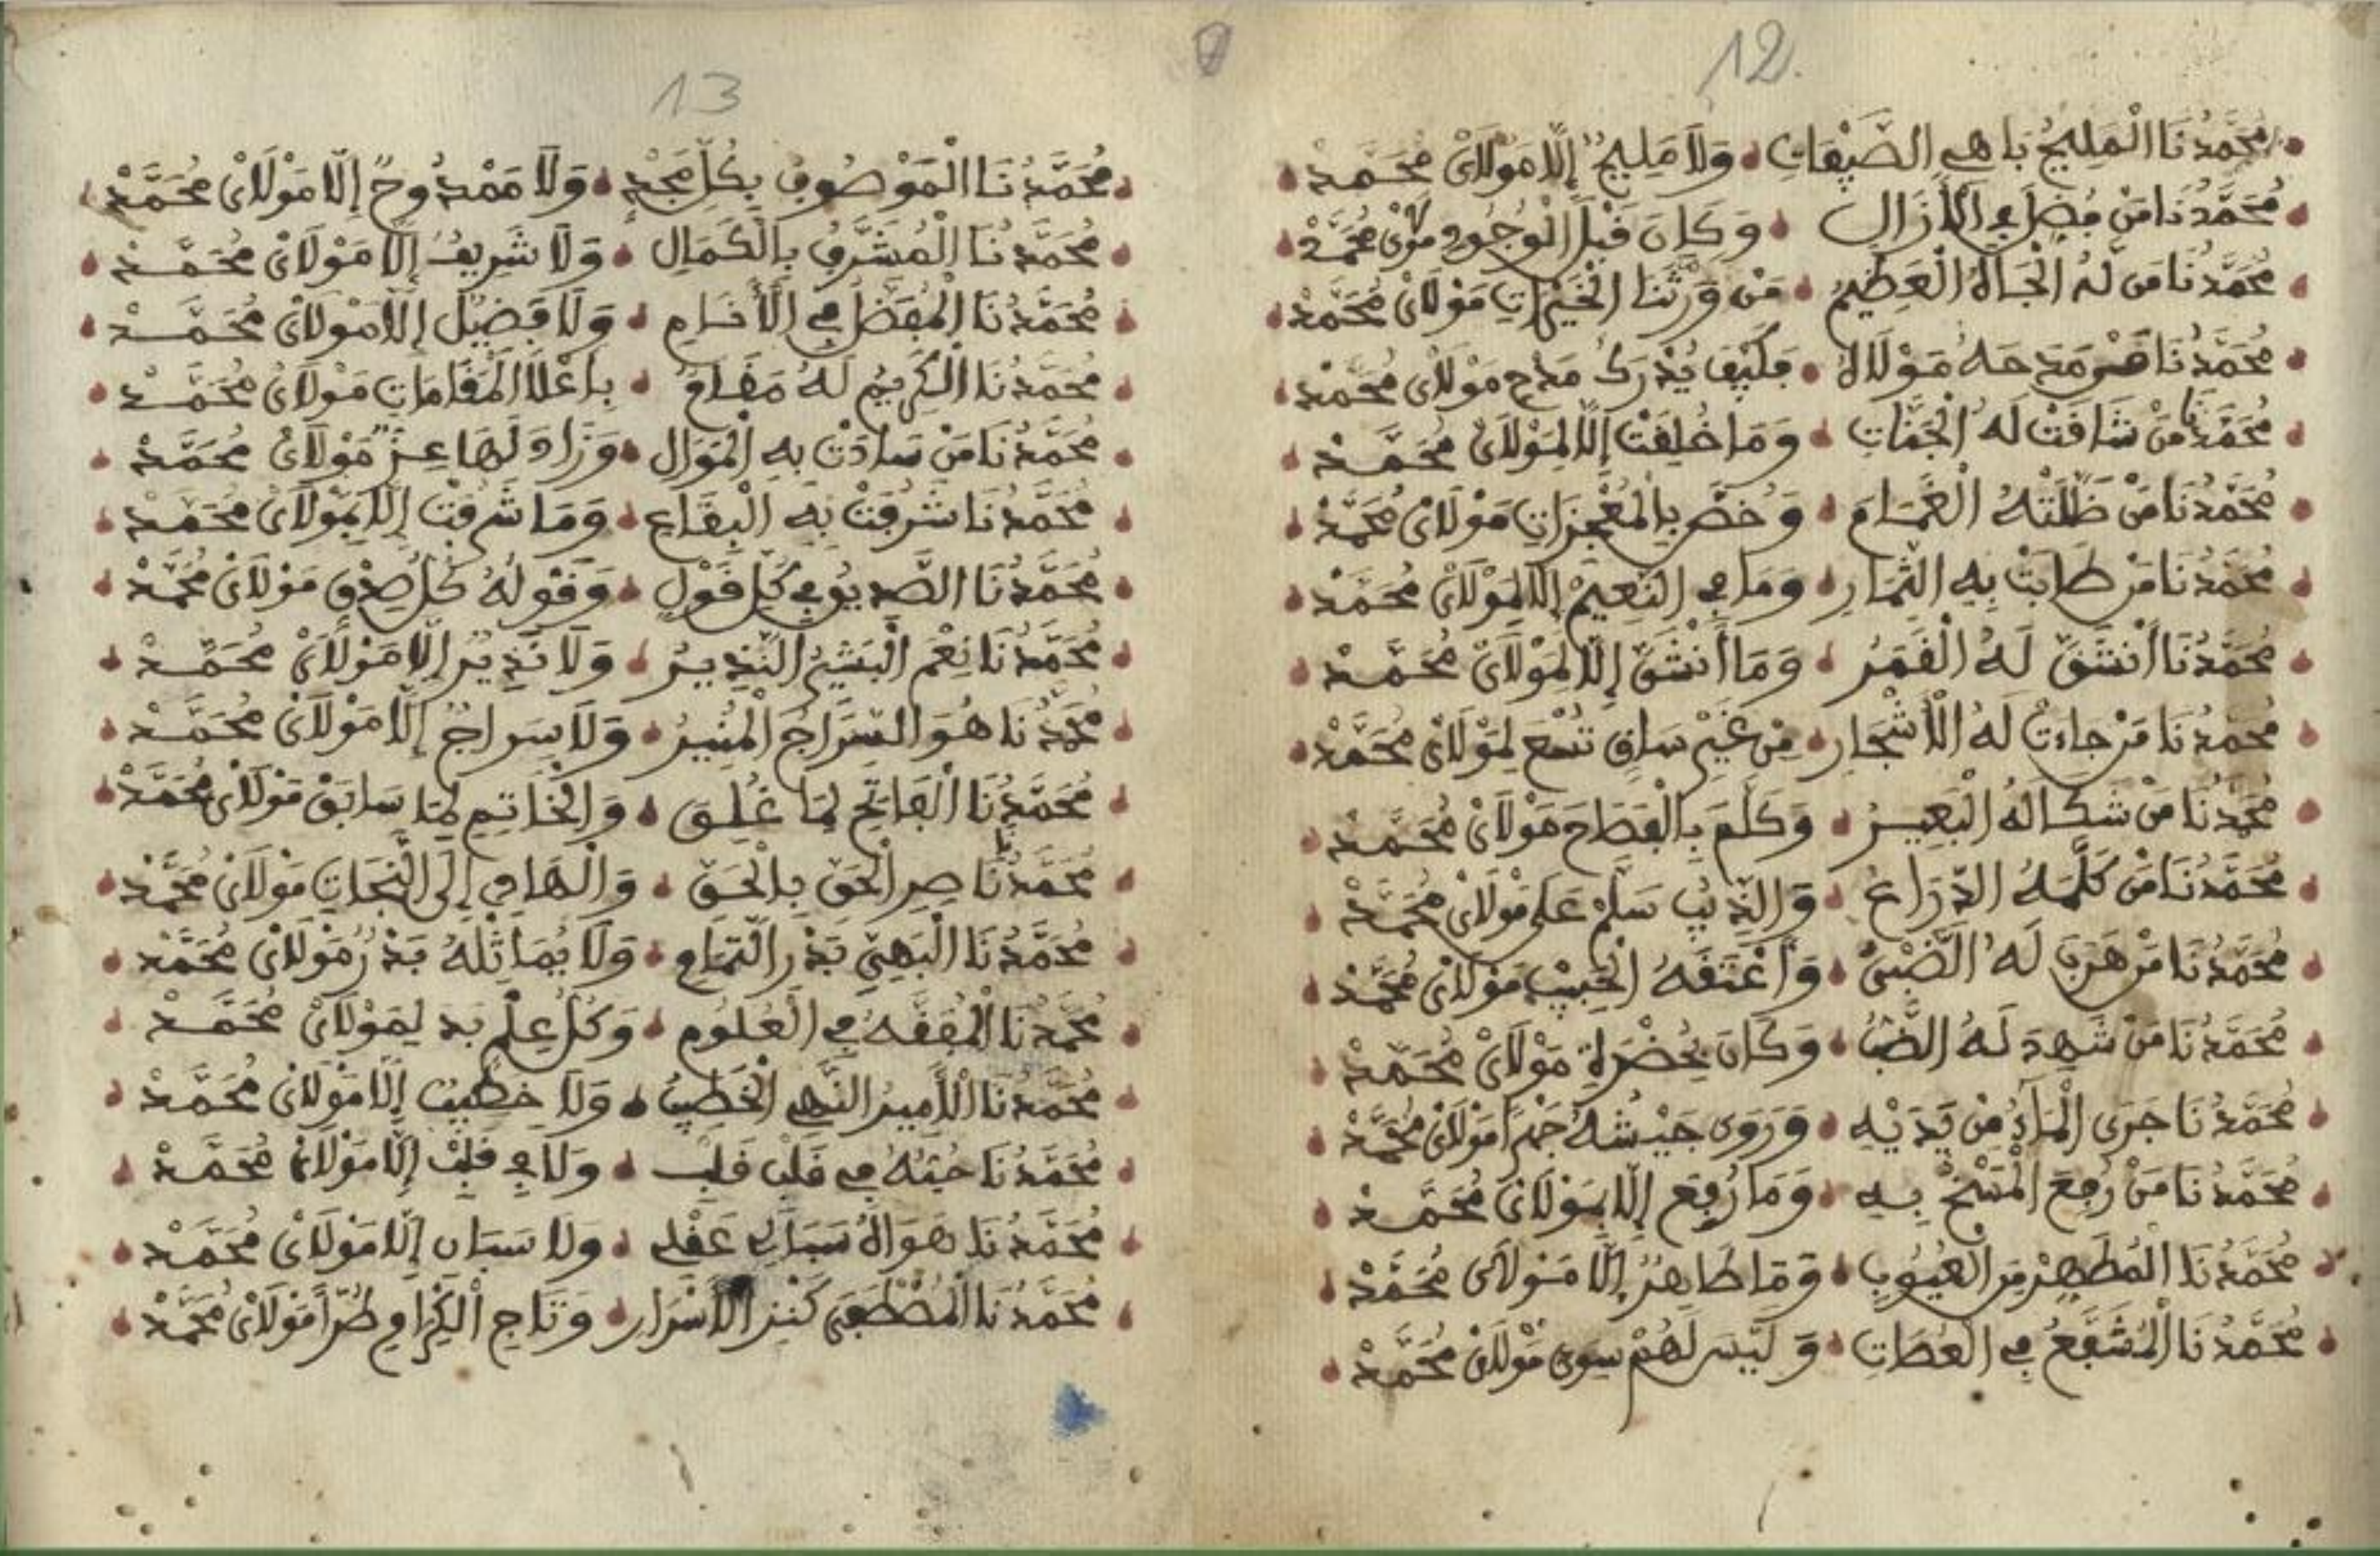 12
مُحَمَّدُنَا الْمَلِيحُ بَاهِي الصِّفَاتِ وَلَا مَلِيحٌ إِلَّا مَوْلَايْ مُحَمَّدْ
مُحَمَّدُنَا مَنْ فُضِّلَ فِي الْأَزَالِ وَكَانَ قَبْلَ الْوُجُودِ مَوْلَايْ مُحَمَّدْ
مُحَمَّدُنَا مَن لَهُ الْجَاهُ الْعَظِيمُ مَنْ وَرَّثَنَا الْخَيْرَاتِ مَوْلَايْ مُحَمَّدْ
مُحَمَّدُنَا مَدَحَهُ مَوْلَاهُ فَكَيْفَ يُدْرَكُ مَدْحِ مَوْلَايْ مُحَمَّدْ
مُحَمَّدُنَا مَنْ شَاقَتْ لَهُ الْجَنَّاتِ وَمَا خُلِقَتْ إِلَّا لِمَوْلَايْ مُحَمَّدْ
مُحَمَّدُنَا مَنْ ظَلَّلَتْهُ الْغَمَامَ وَخُصَّ بِالْمُعْجِزَاتِ مَوْلَايْ مُحَمَّدْ
مُحَمَّدُنَا مَنْ طَابَتْ بِهِ الثِّمَارِ وَمَا فِي النَّعِيمْ إِلَّا لِمَوْلَايْ مُحَمَّدْ
مُحَمَّدُنَا أَنْشَقَّ لَهُ الْقَمَرُ وَمَا أَنْشَقَّ إِلَّا لِمَوْلَايْ مُحَمَّدْ
مُحَمَّدُنَا مَنْ جَاءَتْ لَهُ الْأَشْجَارِ مِنْ غَيْرِ سَاقٍ تَسْعَ لِمَوْلَايْ مُحَمَّدْ
مُحَمَّدُنَا مَنْ شَكَالَهُ الْبَعِيرُ وَكَلَّمَ بِالْفِصَاحَ مَوْلَايْ مُحَمَّدْ
مُحَمَّدُنَا مَنْ كَلَّمَهُ الذِّرَاعُ وَالذِّيبُ سَلَّمْ عَلَى مَوْلَايْ مُحَمَّدْ
مُحَمَّدُنَا مَنْ هَرَبَ لَهُ الضَّبْيُ وَأَعْتَقَهُ الْحَبِيبْ مَوْلَايْ مُحَمَّدْ
مُحَمَّدُنَا مَنْ شَهِدَ لَهُ الضَّبُّ وَكَانَ بِحُضْرَةِ مَوْلَايْ مُحَمَّدْ
مُحَمَّدُنَا جَرَى الْمَاءُ مِنْ يَدَيْهِ وَرَوَى جَيْشَهُ مَوْلَايْ مُحَمَّدْ
مُحَمَّدُنَا مَنْ رُفِعَ الْمَسْخُ بِهِ وَمَا رُفِعَ إِلَّا بِمَوْلَايْ مُحَمَّدْ
مُحَمَّدُنَا الْمُطَهَّرْ مِنَ الْعُيُوبِ وَمَا طَاهِرٌ إِلَّا مَوْلَايْ مُحَمَّدْ
مُحَمَّدُنَا الْمُشَفَّعُ فِي الْعُصَاتِ وَلَيْسَ لَهُمْ سِوَى مَوْلَايْ مُحَمَّدْ
13
مُحَمَّدُنَا الْمَوْصُوفُ بِكُلِّ مَجْدٍ وَلَا مَمْدُوحٌ إِلَّا مَوْلَايْ مُحَمَّدْ
مُحَمَّدُنَا الْمُشَرَّفُ بِالْكَمَالِ وَلَا شَرِيفٌ إِلَّا مَوْلَايْ مُحَمَّدْ
مُحَمَّدُنَا الْمُفَضَّلُ فِي الْأَنَامِ وَلَا فَضِيلٌ إِلَّا مَوْلَايْ مُحَمَّدْ
مُحَمَّدُنَا الْكَرِيمُ لَهُ مَقَامٌ بِأَعْلَا الْمَقَامَاتِ مَوْلَايْ مُحَمَّدْ
مُحَمَّدُنَا مَنْ سَادَتْ بِهِ الْمَوَالِ وَزَادَ لَهَا عِزٌّ مَوْلَايْ مُحَمَّدْ
مُحَمَّدُنَا شَرُفَتْ بِهِ الْبِقَاعِ وَمَا شَرُفَتْ إِلَّا بِمَوْلَايْ مُحَمَّدْ
مُحَمَّدُنَا الصَّدِيقُ فِي كُلِّ قَوْلٍ وَقَوْلُهُ كُلُّ صِدْقٍ مَوْلَايْ مُحَمَّدْ
مُحَمَّدُنَا نِعْمَ الْبَشِيرُ النَّذِيرُ وَلَا نَذِيرٌ إِلَّا مَوْلَايْ مُحَمَّدْ
مُحَمَّدُنَا هُوَ السِّرَاجُ الْمُنِيرُ وَلَا سِرَاجٌ إِلَّا مَوْلَايْ مُحَمَّدْ
مُحَمَّدُنَا الْفَاتِحِ لِمَا غُلِقَ وَالْخَاتِمِ لِمَا سَابَقْ مَوْلَايْ مُحَمَّدْ
مُحَمَّدُنَا نَاصِرِ الْحَقِّ بِالْحَقِّ وَالْهَادِي إِلَى النَّجَاتِ مَوْلَايْ مُحَمَّدْ
مُحَمَّدُنَا الْبَهِيِّ بَدْرِ التَّمَامِ وَلَا يُمَاثِلُهُ بَدْرُ مَوْلَايْ مُحَمَّدْ
مُحَمَّدُنَا الْمُفَقَّهُ فِي الْعُلُومِ وَكُلُّ عِلْمٍ بَدَ لِمَوْلَايْ مُحَمَّدْ
مُحَمَّدُنَا الْأَمِيرُ النَّهِي الْخَطِيبُ وَلَا خَطِيبٌ إِلَّا مَوْلَايْ مُحَمَّدْ
مُحَمَّدُنَا حُبُّهُ فِي قَلْبِ قَلْبِ وَلَا فِي قَلْبْ إِلَّا مَوْلَايْ مُحَمَّدْ
مُحَمَّدُنَا هَوَاهُ سَبَالِي عَقْلِي وَلَا سَبَانِ إِلَّا مَوْلَايْ مُحَمَّدْ
مُحَمَّدُنَا الْمُصْطَفَى كَنْزِ الْأَسْرَارِ وَتَاجِ الْكِرَامِ طُرًّا مَوْلَايْ مُحَمَّدْ